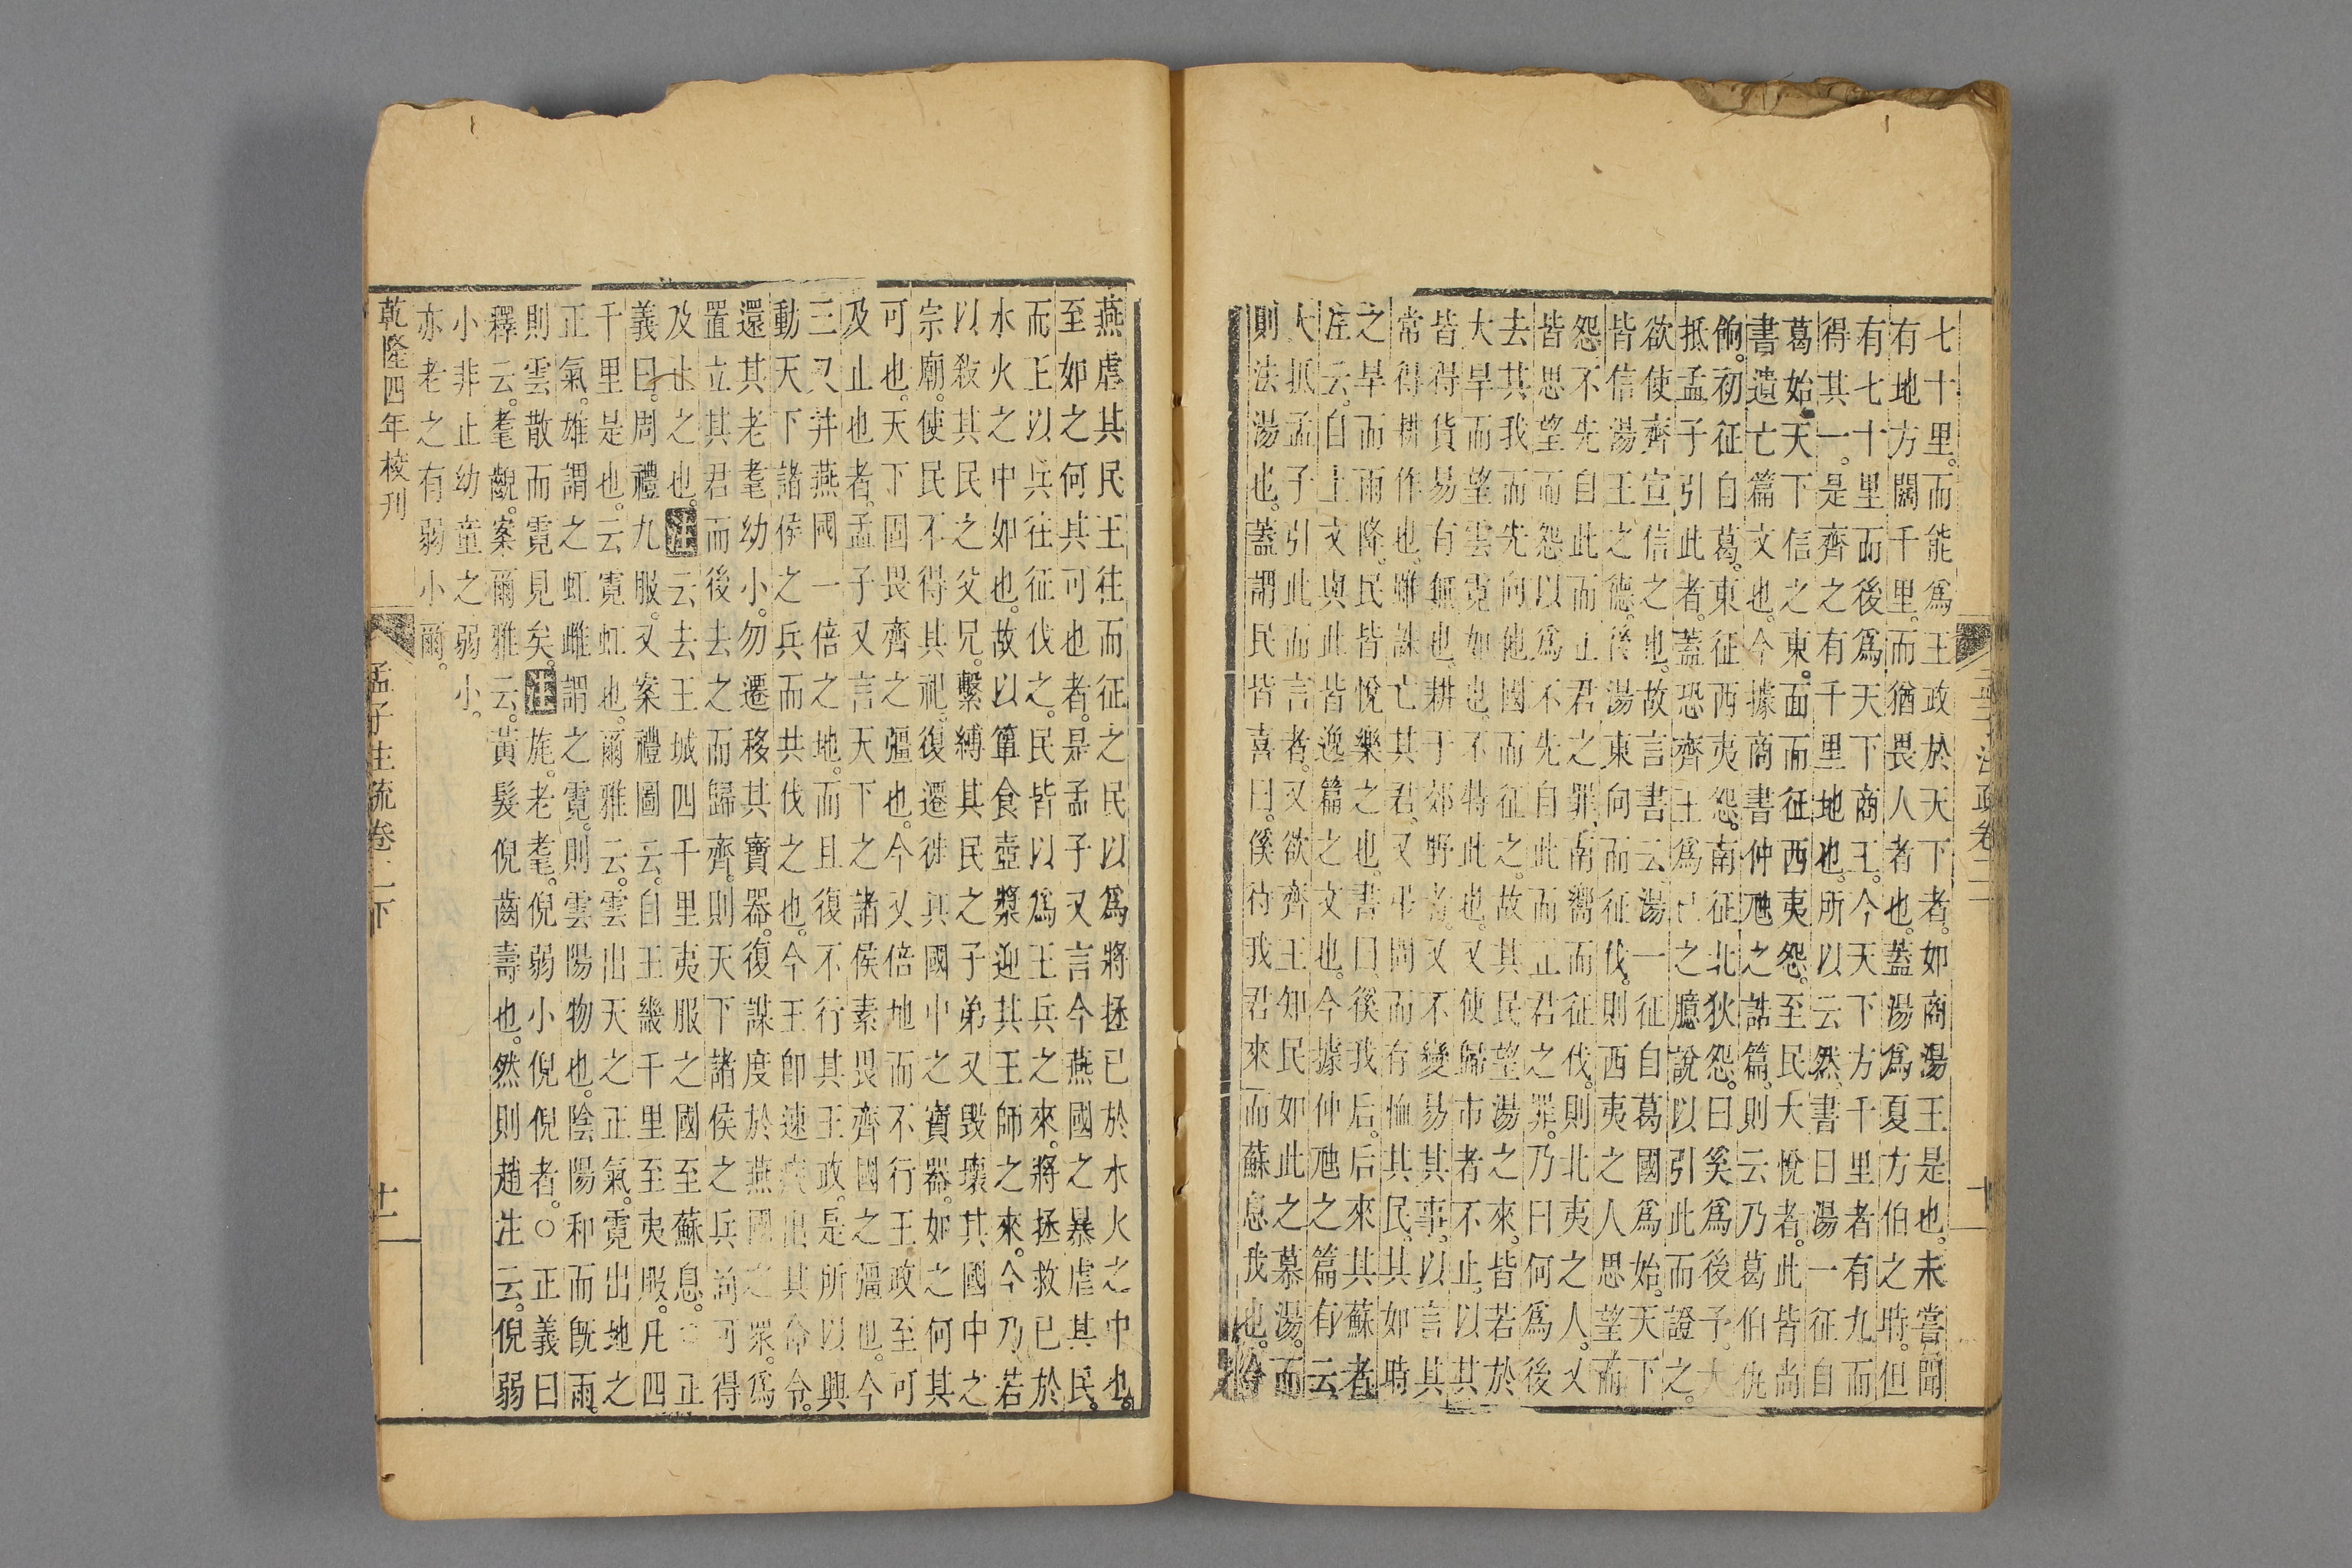 七十里而能爲王政於天下者如商湯王是也未嘗聞
有地方闊千里而猶畏人者也蓋湯爲夏方伯之時但
有七十里而後爲天下商王今天下方千里者有九而
得其一是齊之有千里地也所以云然書曰湯一征自
葛始天下信之東面而征西夷怨至民大悅者此皆尚
書遺亡篇文也今據商書仲虺之誥篇則云乃葛伯仇
餉初征自葛東征西夷怨南征北狄怨曰奚爲後予大
抵孟子引此者蓋恐齊王爲己之臆說以引此而證之
欲使齊宣信之也故言書云湯一征自葛國爲始天下
皆信湯王之德後湯東向而征伐則西夷之人思望而
怨不先自此而正君之罪南嚮而征伐則北夷之人又
皆思望而怨以爲不先自此而正君之罪乃曰何爲後
去其我而先向他國而征之故其民望湯之來皆若於
大旱而望雲霓如也不特此也又使歸市者不止以其
皆得貨易有無也耕于郊野者又不變易其事以言其
常得耕作也雖誅亡其君又弔問而存恤其民其如時
之旱而雨降民皆悅樂之也書曰徯我后后來其蘇者
注云自上文與此皆逸篇之文也今據仲虺之篇有云
大抵孟子引此而言者又欲齊王知民如此之慕湯而
則法湯也蓋謂民皆喜曰徯待我君來而蘇息我也今
燕虐其民王往而征之民以爲將拯已於水火之中也
至如之何其可也者是孟子又言今燕國之暴虐其民
而王以兵往征伐之民皆以爲王兵之來將拯救已於
水火之中如也故以簞食壺漿迎其王師之來今乃若
以殺其民之父兄繫縛其民之子弟又毀壞其國中之
宗廟使民不得其祀復遷徙其國中之寶器如之何其
可也天下固畏齊之彊也今又倍地而不行王政至可
及止也者孟子又言天下之諸侯素畏齊國之彊也今
三又并燕國一倍之地而且復不行其王政是所以興
動天下諸侯之兵而共伐之也今王即速出其命令
還其老耄幼小勿遷移其寶器復謀度於燕國之衆爲
置立其君而後去之而歸齊則天下諸侯之兵尚可得
及止之也注云去王城四千里夷服之國至蘇息○正
義曰周禮九服又案禮圖云自王畿千里至夷服凡四
千里是也云霓虹也爾雅云雲出天之正氣霓出地之
正氣雄謂之虹雌謂之霓則雲陽物也陰陽和而旣雨
則雲散而霓見矣注旄老耄倪弱小倪倪者○正義曰
釋云耄齯案爾雅云黃髮倪齒壽也然則趙注云倪弱
小非止幼童之弱小
亦老之有弱小爾
乾隆四年校刊
孟子注疏卷二下